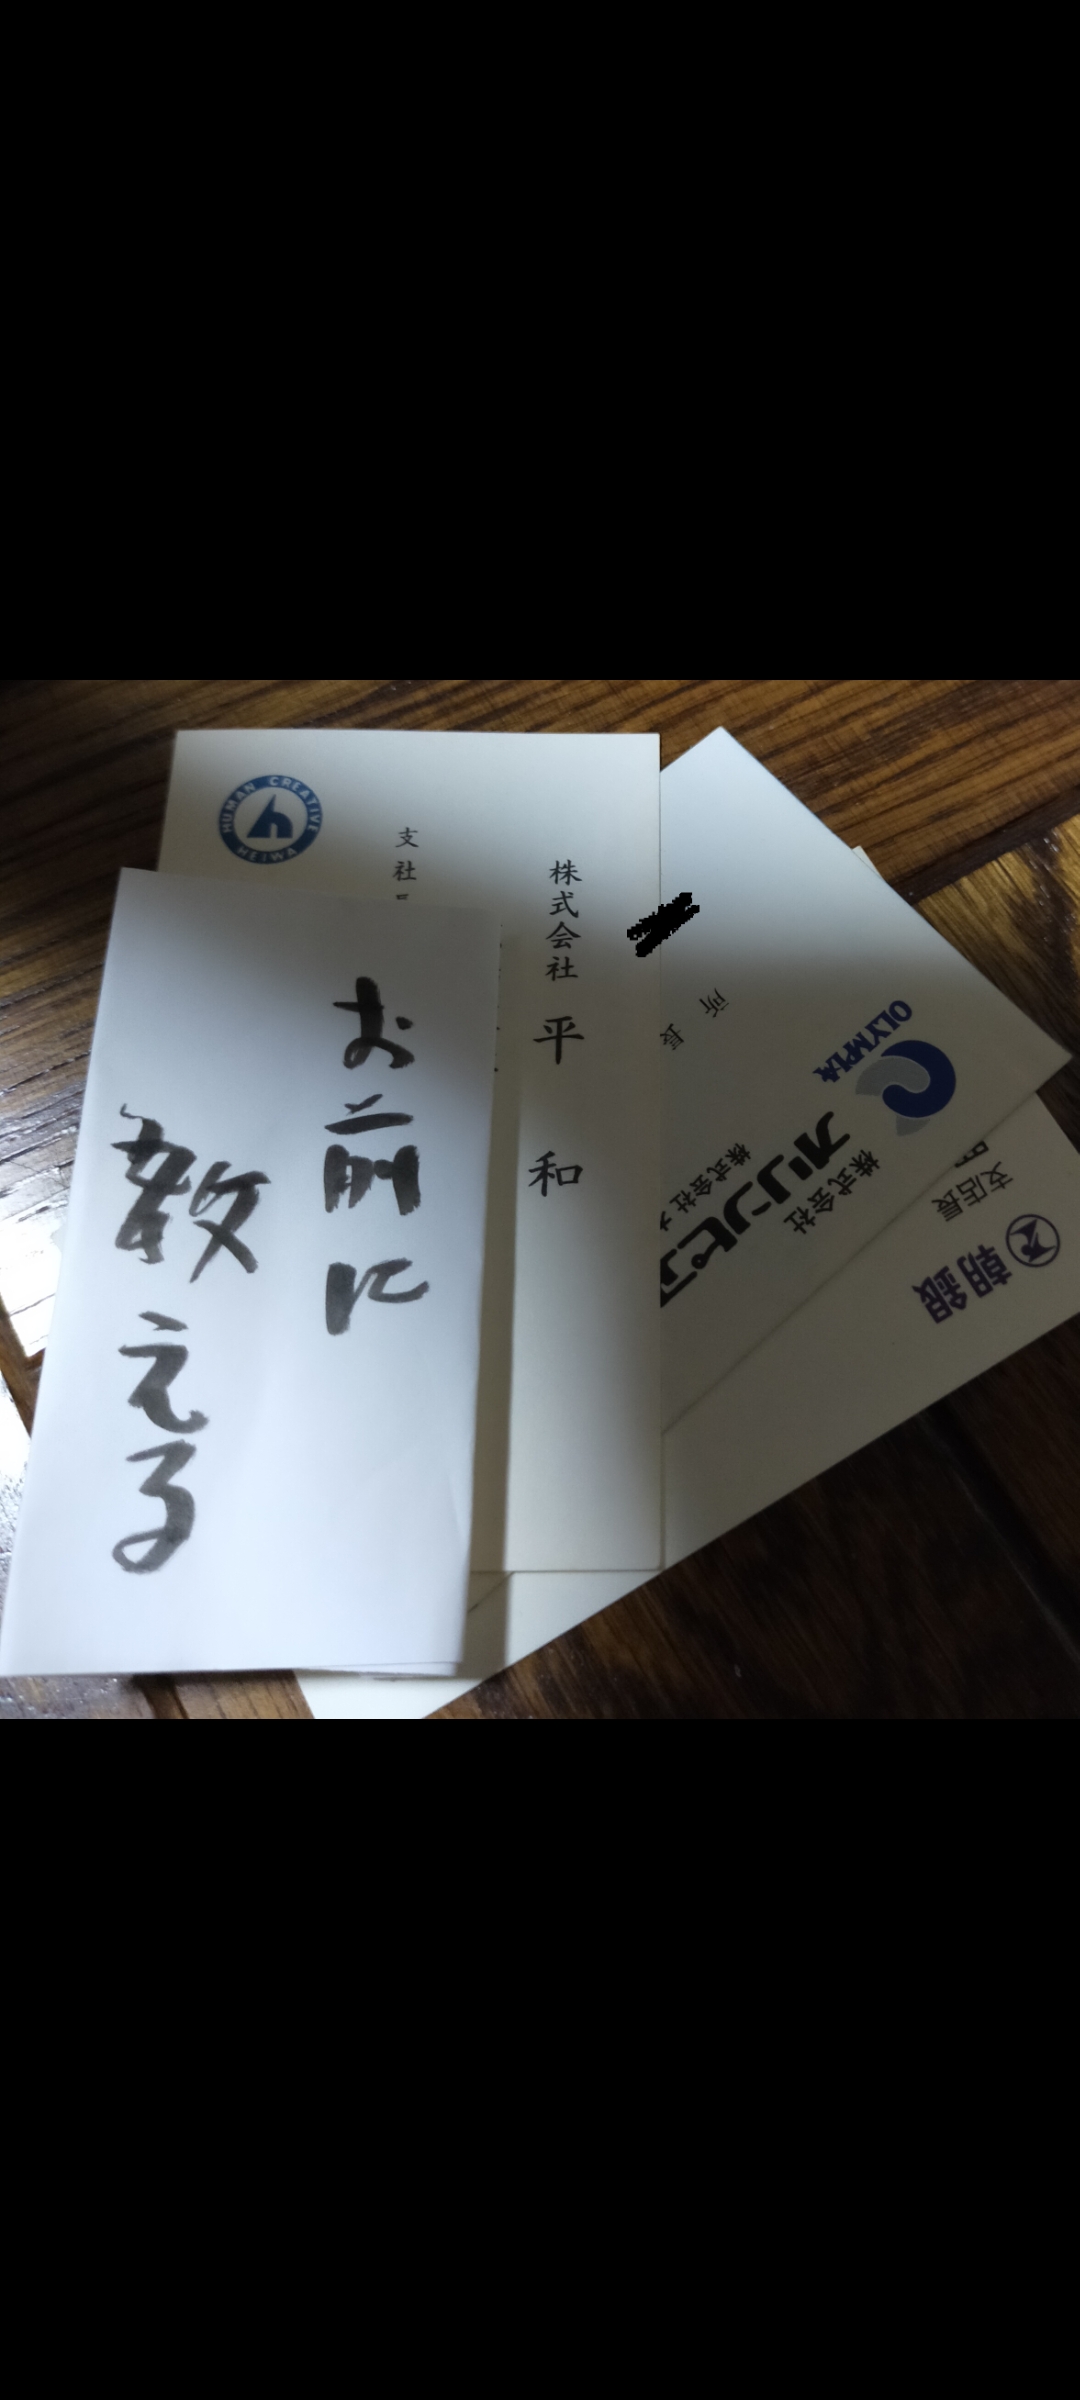 お前に
教える
HUMAN CREATIVE
HEIWA
支社
株式会社 平和
所長
OLYMPIA
株式会社
オリンピア
株式会社
支店長
朝銀